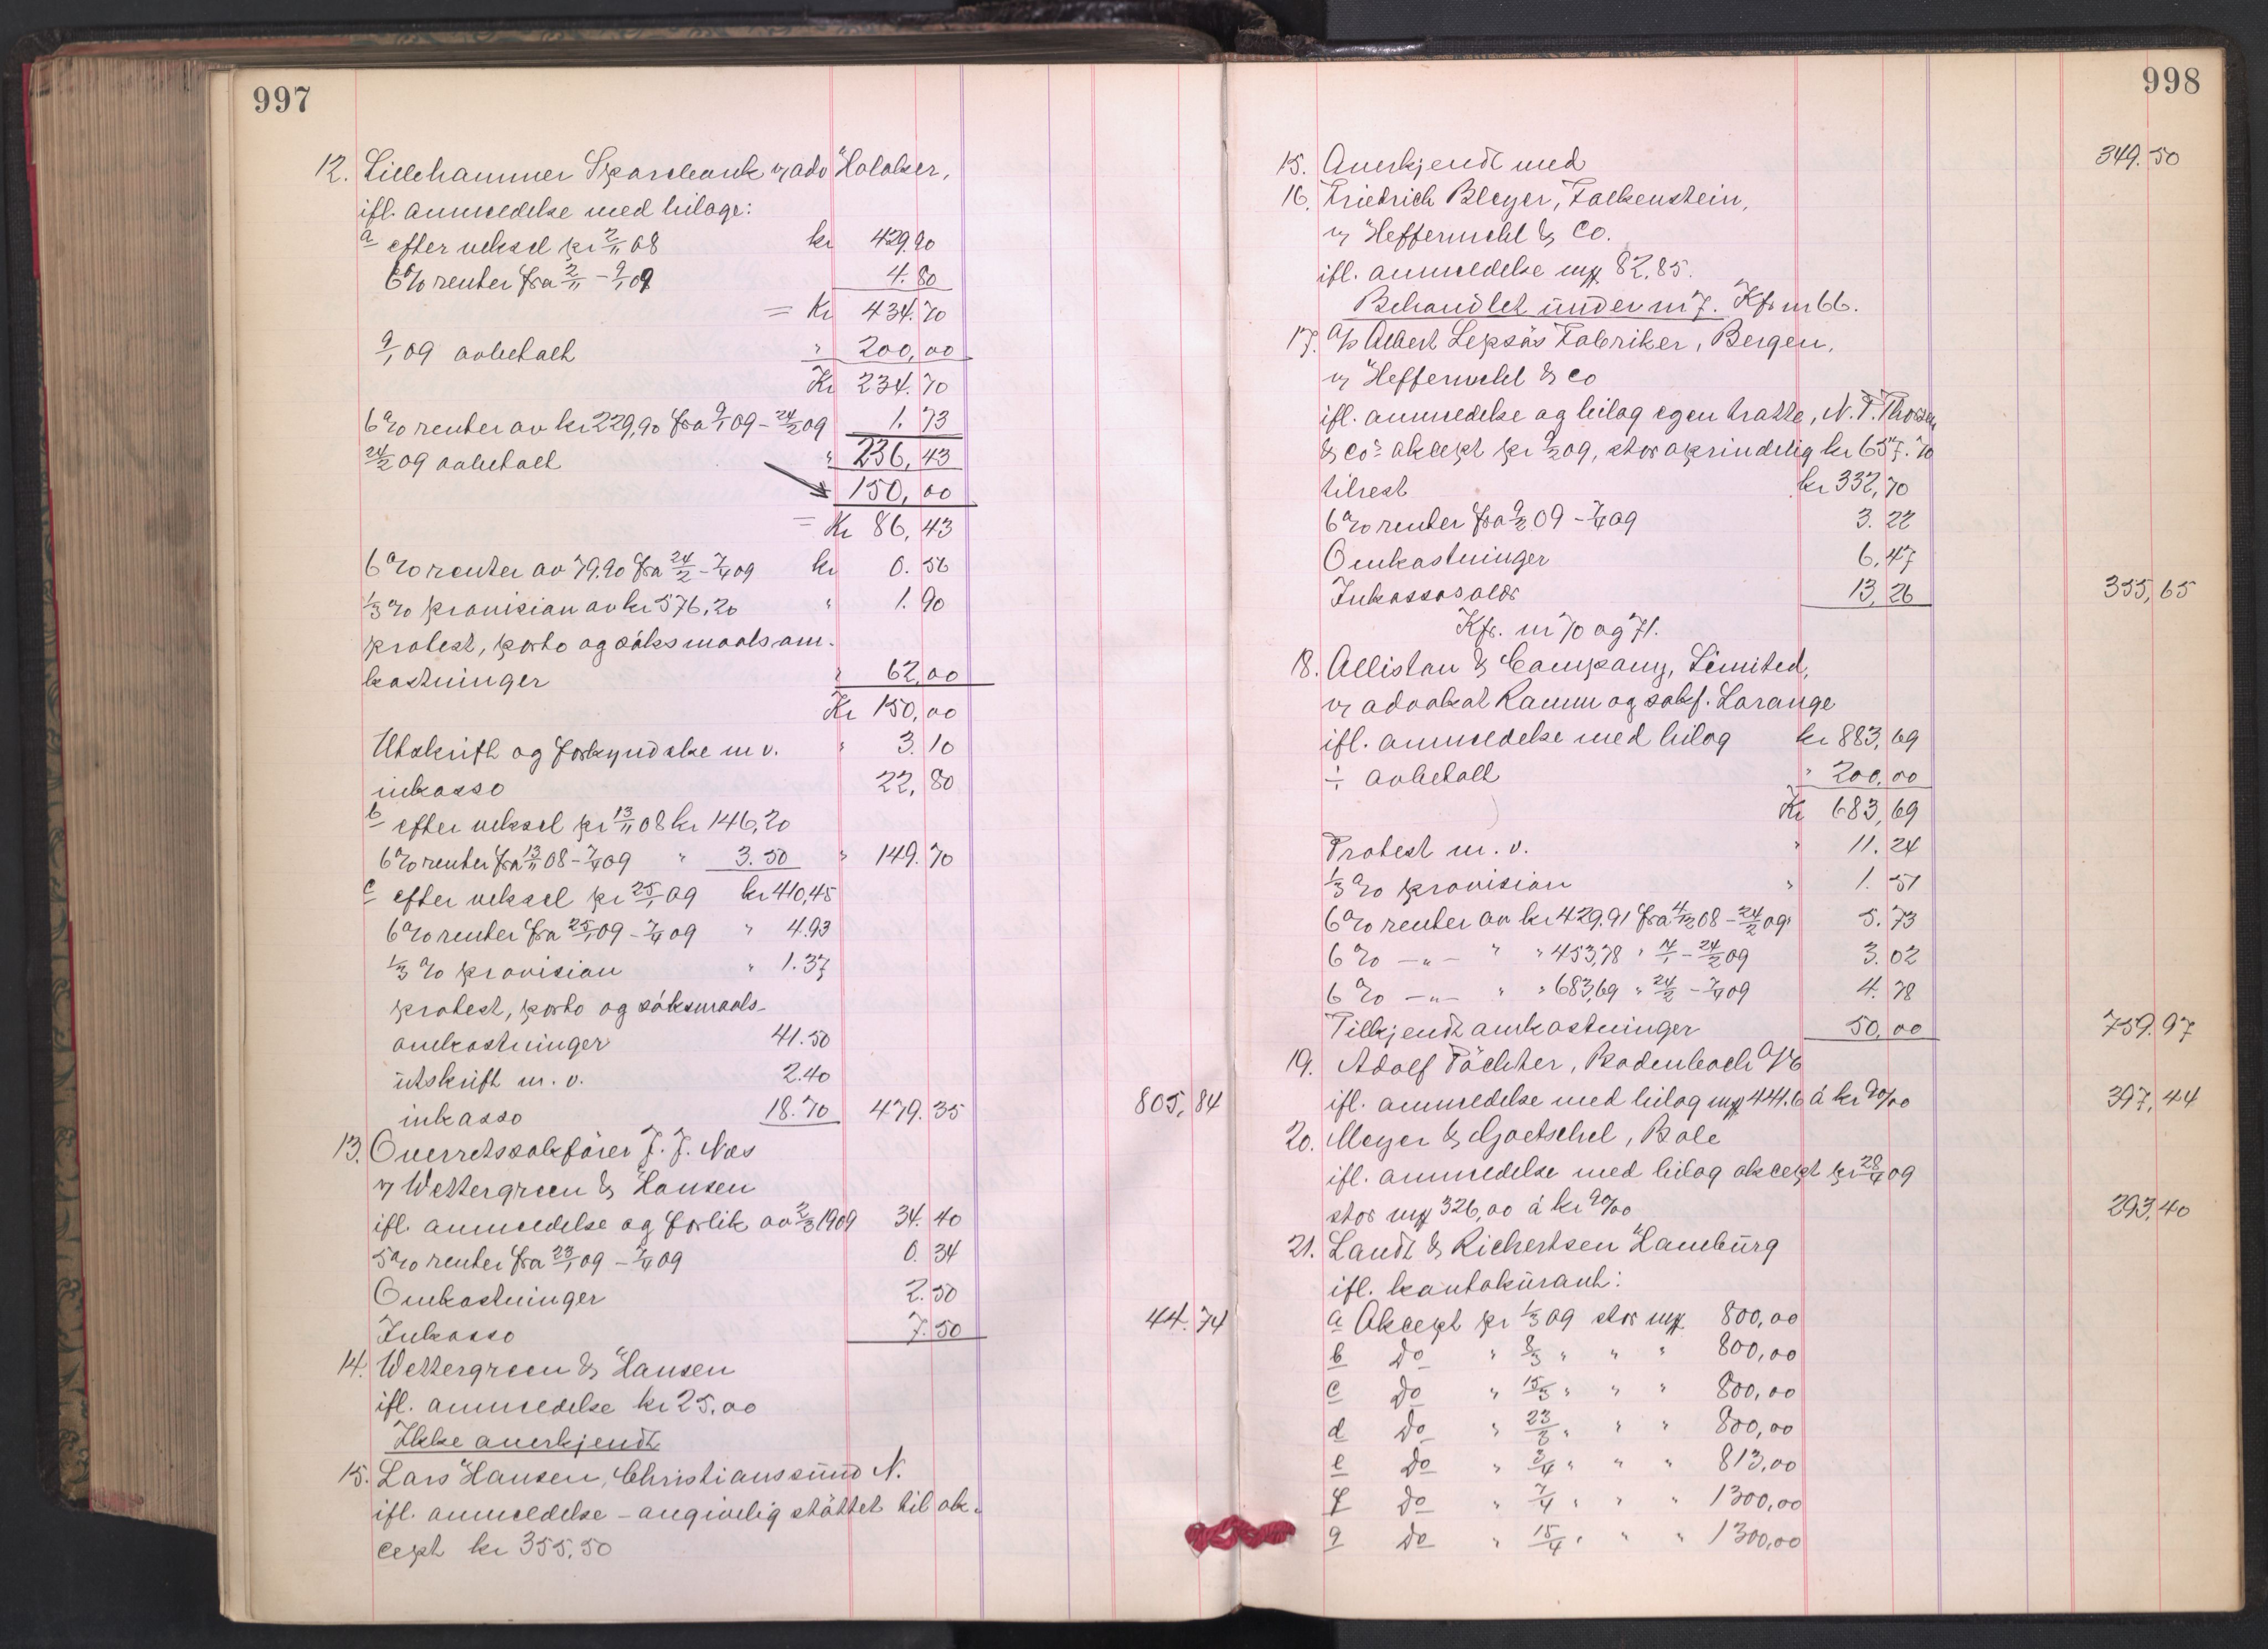 997
12. Lillehammer Sparebank v/ adv Holaker,
ifl. anmeldelse med bilage:
a efter veksel pr 2/11 08 kr 429.90
6% renter fra 2/11 - 9/1 09 4.80
= Kr 434.70
9/1 09 avbetalt " 200,00
Kr 234.70
6% renter av kr 229,90 fra 9/1 09 - 24/2 09 1.73
236,43
24/2 09 avbetalt " 150,00
= Kr 86,43
6% renter av 79.90 fra 24/2 - 7/4 09 kr 0.56
1/3 % provision av kr 576,20 " 1.90
protest, porto og søksmaalsom-
kostninger " 62,00
Kr 150,00
Utskrift og forkyndelse m v. " 3.10
inkasso 22,80
b efter veksel pr 13/11 08 kr 146,20
6% renter fra 13/11 08 - 7/4 09 " 3.50 " 149.70
c efter veksel pr 25/1 09 kr 410,45
6% renter fra 25/1 09 - 7/4 09 " 4.93
1/3 % provision " 1.37
protest, porto og søksmaals-
omkostninger 41.50
utskrift m. v. 2.40
inkasso 18.70 479.35 805,84
13. Overretssakfører J. J. Næs
v/ Wettergreen & Hansen
ifl. anmeldelse og forlik av 2/3 1909 34.40
5% renter fra 23/1 09 - 7/4 09 0.34
Omkostninger 2.50
Inkasso 7.50 44.74
14. Wettergreen & Hansen
ifl. anmeldelse kr 25,00
Ikke anerkjendt
15. Lars Hansen, Christianssund N.
ifl. anmeldelse - angivelig støttet til ak-
cept kr 355,50
998
15. Anerkjendt med 349.50
16. Friedrich Bleyer, Falkenstein,
v/ Heffermehl & Co.
ifl. anmeldelse mk 82,85.
Behandlet under nr 7. Kfr nr 66.
17. A/s Albert Lepsøs Fabriker, Bergen,
v/ Heffermehl & Co
ifl. anmeldelse og bilag egen tratte, N. T. Thorsen
& Co's akcept pr 9/2 09, stor oprindelig kr 657.70
tilrest kr 332,70
6% renter fra 9/2 09 - 7/4 09 3.22
Omkostninger 6,47
Inkassosalær 13,26 355,65
Kfr. nr 70 og 71.
18. Alliston & Company, Limited,
v/ advokat Ramm og sakf. Lorange
ifl. anmeldelse med bilag kr 883,69
÷ avbetalt " 200,00
Kr 683,69
Protest m. v. " 11.24
1/3 % provision " 1.51
6% renter av kr 429.91 fra 4/12 08 - 24/2 09 5.73
6% -"- " " 453,78 " 14/1 - 24/2 09 3.02
6% -"- " " 683,69 " 24/2 - 7/4 09 4.78
Tilkjendt omkostninger 50,00 759.97
19. Adolf Pächter, Bodenbach a/E
ifl. anmeldelse med bilag mk 441.6 á kr 90/00 397,44
20. Meyer & Goetschel, Bale
ifl. anmeldelse med bilag akcept pr 28/4 09
stor mk 326,00 á kr 90/00 293,40
21. Landt & Richertsen Hamburg
ifl. kontokurant:
a Akcept pr 1/3 09 stor mk 800,00
b do " 8/3 " " " 800,00
c do " 15/3 " " " 800,00
d do " 23/3 " " " 800,00
e do " 2/4 " " " 813,00
f do " 7/4 " " " 1300,00
g do " 15/4 " " " 1300,00